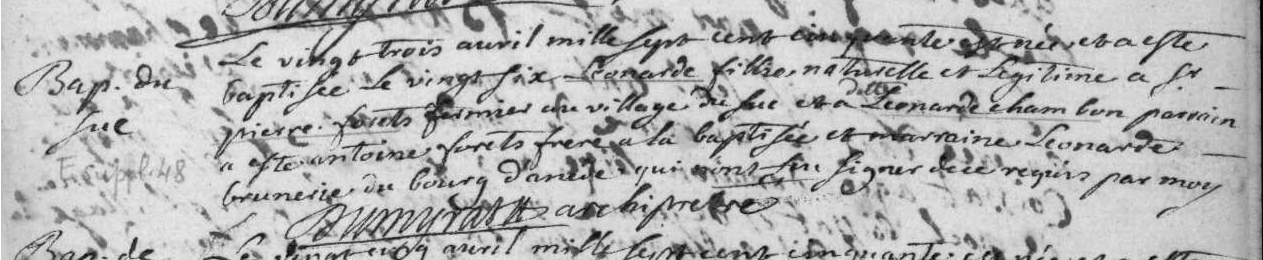 Bap. du
suc
E suppl. 48
Le vingt trois avril mille sept cent cinquante est née et a esté
baptisée Le vingt six Léonarde fillie naturelle et Legitime a Sr
pierre forets fermier au village du suc et a delle Léonarde chambon parrain
a esté antoine forets frere a la baptisée et marraine Léonarde
brunerie du bourg qui n'ont sçu signer de ce requis par moy
archipretre
Bap. de
Le vingt cinq avril mille sept cent cinquante est née et a esté